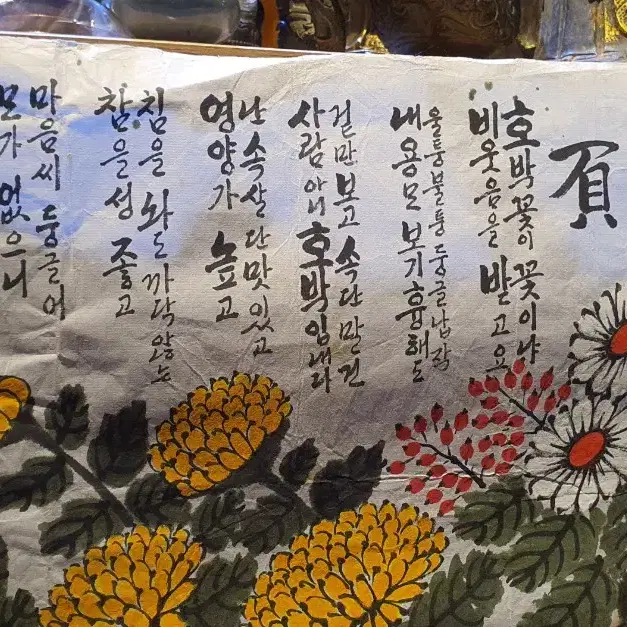 호박꽃이 꽃이냐
비웃음을 받고요
울퉁불퉁 둥글납작
내 용모 보기 흉해도
겉만 보고 속단 말건
사람 아니 호박입네다
난 속살 단맛 있고
영양가 높고
침을 놔도 까닥 않는
참을성 좋고
마음씨 둥글어
모가 없으니